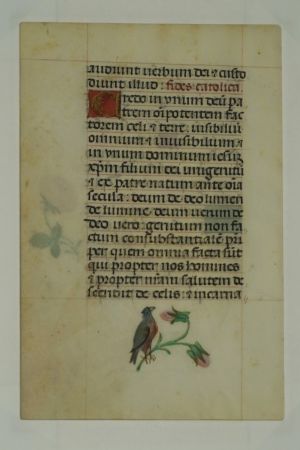 audiunt verbum dei ⁊ custo
diunt illud : fides catolica.
Credo in vnum deũ pa
trem oĩpotentem fac
torem celi ⁊ terre: uisibiliũ
omnium ⁊ inuisibilium ⁊
in vnum dominum iesuʒ
xp̃m filium dei unigenitũ
⁊ ex patre natum ante oĩa
secula : deum de deo lumen
de lumine : deum uerum de
deo vero : genitum non fa
ctum consubstantialẽ pri
per quem omnia facta sũt
qui propter nos homines
⁊ propter nr̃am salutem de
scendit de celis : ⁊ incarna